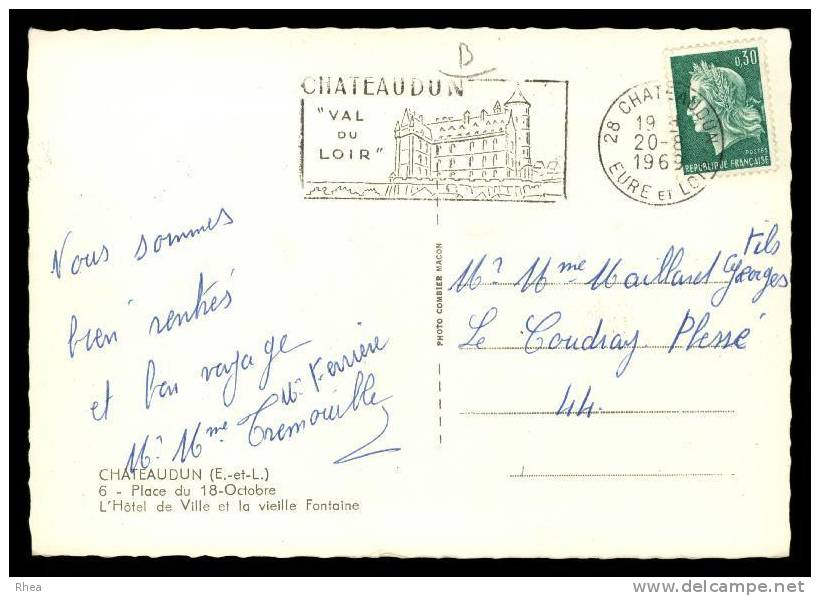 B
CHATEAUDUN
"VAL
DU
LOIR"
28 CHATEAUDUN
19
20-8
1969
EURE ET LOIR
0,30
POSTES
REPUBLIQUE FRANÇAISE
Nous sommes
bien rentrés
et bon voyage
Mr Ferrière
Mr Mme Tremouille
PHOTO COMBIER MACON
fils
Mr Mme Maillard Georges
Le Coudray Plessé
44.
CHATEAUDUN (E.-et-L.)
6 - Place du 18-Octobre
L'Hôtel de Ville et la vieille Fontaine
Rhea
delcampe.net